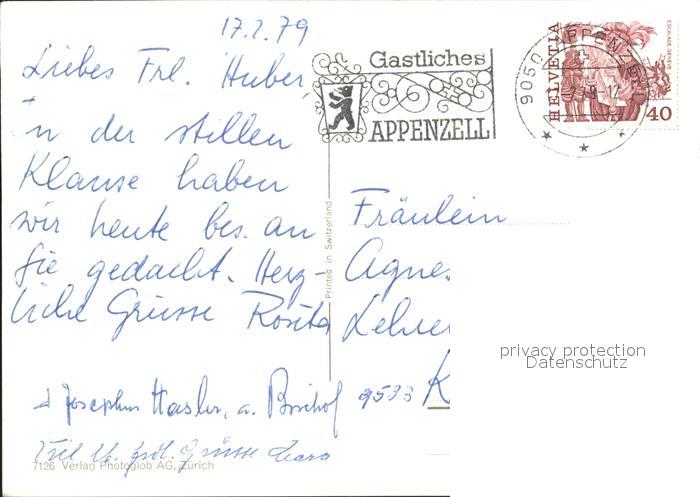 17.2.79
Liebes Frl. Huber,
in der stillen
Klause haben
wir heute bes. an
Sie gedacht. Herz-
liche Grüsse Rosita
Josephus Hasler, a.
Grüsse
7126 Verlag Photoglob AG, Zürich
Printed in Switzerland
Gastliches
APPENZELL
9050 APPENZELL
HELVETIA
ESCALADE GENÈVE
40
Fräulein
Agnes
Lehrer
9533 K
privacy protection
Datenschutz